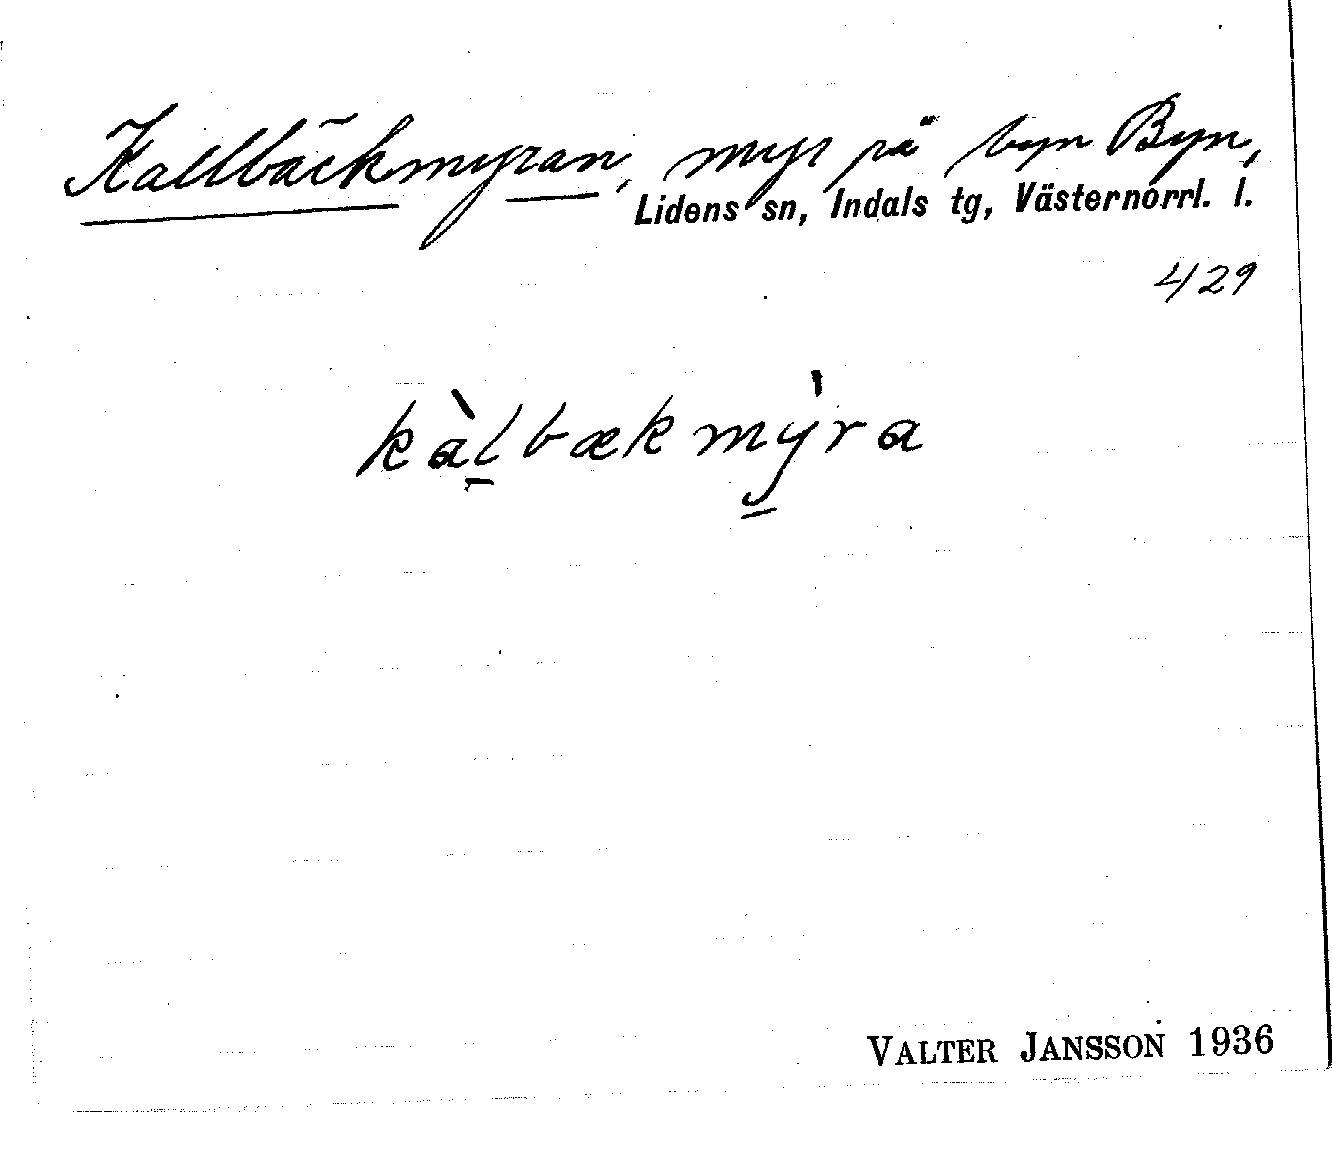 Kallbäckmyran, myr på byn Byn,
Lidens sn, Indals tg, Västernorrl. l.
429
kàl̠bækmỳ̠ra
VALTER JANSSON 1936